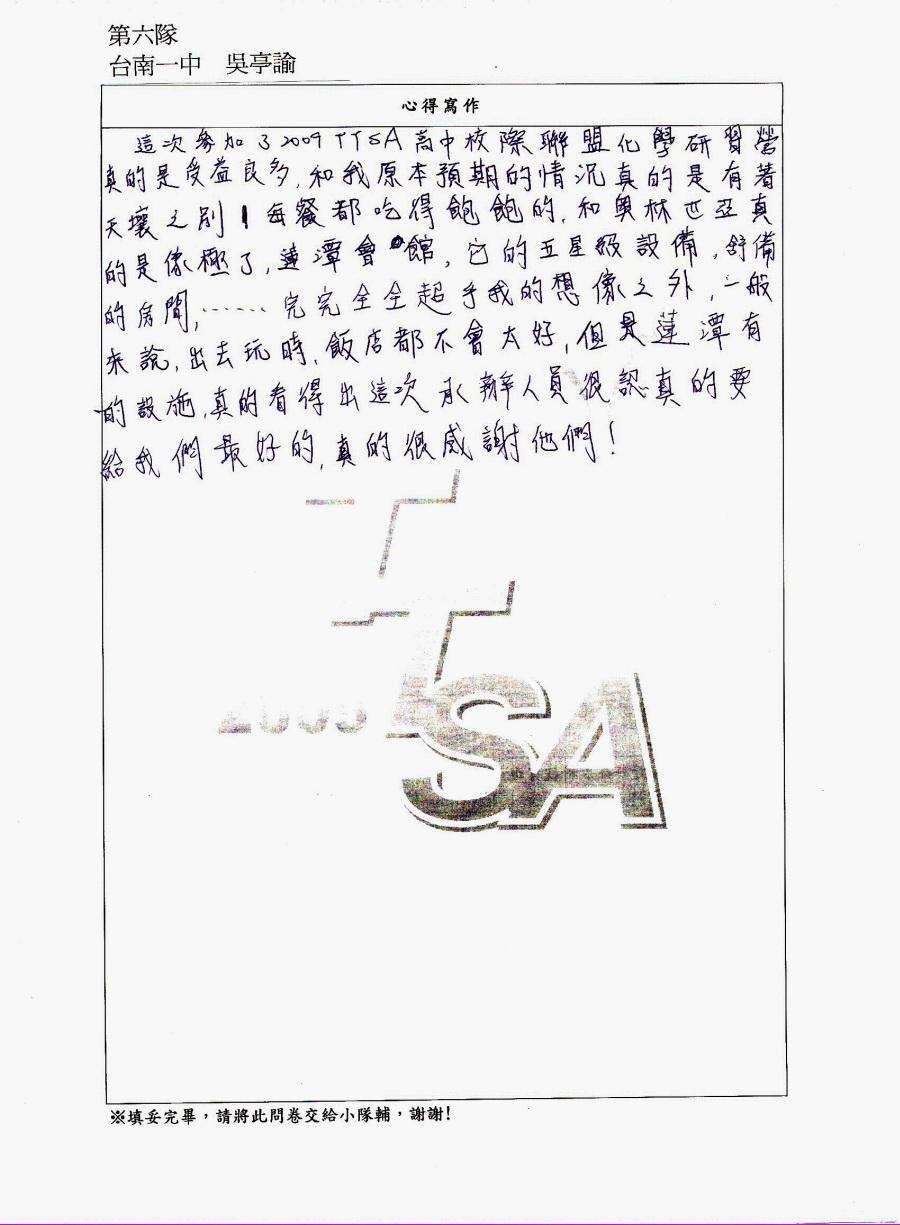 第六隊
台南一中 吳亭諭
心得寫作
這次參加了2009 TTSA高中校際聯盟化學研習營
真的是受益良多,和我原本預期的情況真的是有著
天壤之別!每餐都吃得飽飽的,和奧林匹亞真
的是像極了,蓮潭會館,它的五星級設備,舒備
的房間,……完完全全超乎我的想像之外,一般
來說,出去玩時,飯店都不會太好,但是蓮潭有
的設施,真的看得出這次承辦人員很認真的要
給我們最好的,真的很感謝他們!
TTSA
※填妥完畢,請將此問卷交給小隊輔,謝謝!